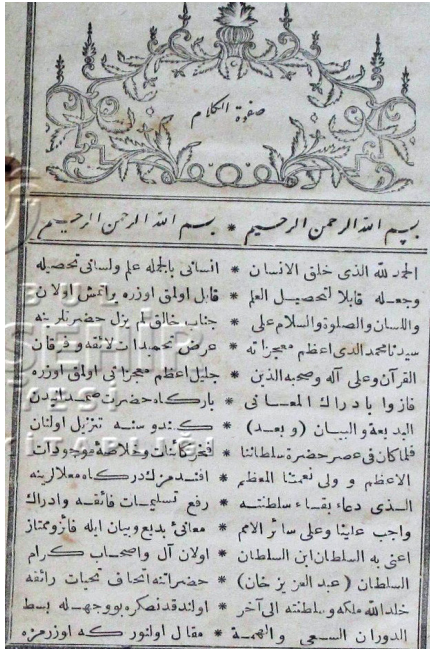 صفوة الكلام
بسم الله الرحمن الرحيم * بسم الله الرحمن الرحيم
الحمد لله الذى خلق الانسان * انسانى بالجمله علم ولسانى تحصيله
وجعله قابلا لتحصيل العلم * قابل اولمق اوزره يراتمش اولان
واللسان والصلوة والسلام على * جناب خالق لم يزل حضرتلرينه
سيدنا محمد الذى اعظم معجزاته * عرض تحميدات لائقه وفرقان
القرآن وعلى آله وصحبه الذين * جليل اعظم معجزاتى اولمق اوزره
فازوا بادراك المعانى * باركاه حضرت صمدانيدن
البديعة والبيان (وبعد) * كندوسنه تنزيل اولنان
فلما كان فى عصر حضرة سلطاننا * فخر كائنات وخلاصهٔ موجودات
الاعظم و ولى نعمتنا المعظم * افندمزك دركاه معلالرينه
الذى دعاء بقاء سلطنته * رفع تسليمات فائقه وادراك
واجب علينا وعلى سائر الامم * معانئ بديع وبيان ايله فاز وممتاز
اعنى به السلطان ابن السلطان * اولان آل واصحاب كرام
السلطان (عبد العزيز خان) * حضراتنه اتحاف تحيات رائقه
خلد الله ملكه وسلطنته الى آخر * اولندقدنصكره بووجهله بسط
الدوران السعى والهمة * مقال اولنور كه اوزرمزه